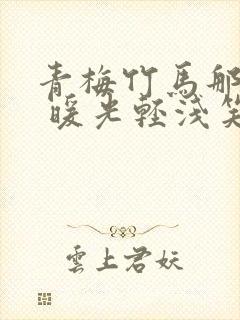 青梅竹馬那
暖光輕淺笑
雲上君妖